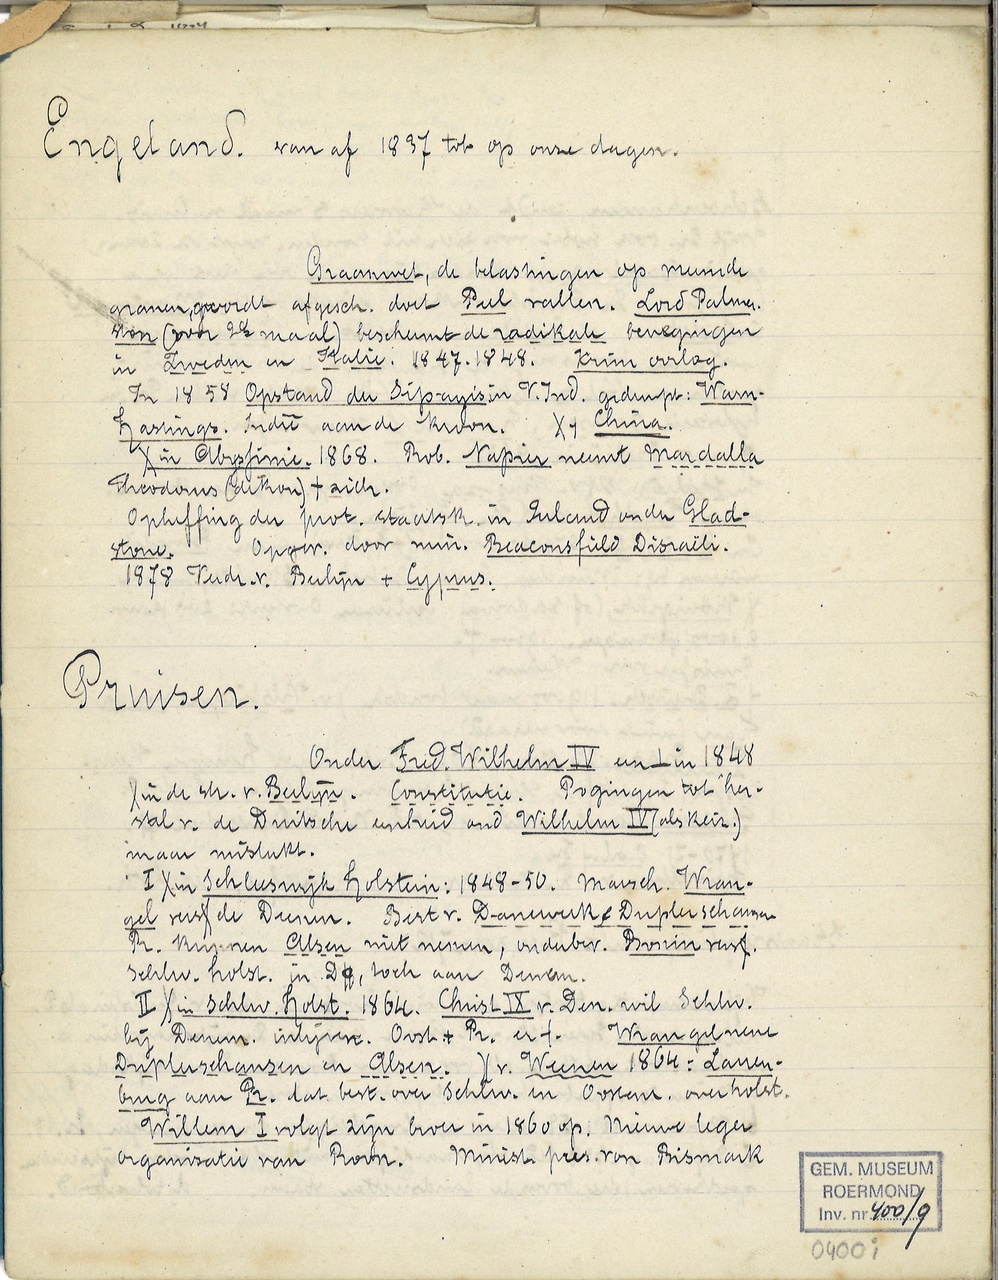 Engeland. van af 1837 tot op onze dagen.
Graanwet, de belastingen op vreemde
granen, wordt afgesch. doet Peel vallen. Lord Palmer-
ston (voor 2de maal) beschermt de radikale bewegingen
in Zweden en Italie. 1847.1848. Krim oorlog.
In 1858 Opstand der Sipayis in V. Ind. gedempt: Warn-
Hastings. Indië aan de kroon. China.
in Abyssinie. 1868. Rob. Napier neemt Mardalla
Theodorus (dikon) + zich.
Opheffing der prot. staatsk. in Ierland onder Glad-
stone. Opgev. door min. Beaconsfield Disraeli.
1878 Verdr. v. Berlijn + Cyprus.
Pruisen.
Onder Fred. Wilhelm IV een ⊥ in 1848
in de str. v. Berlijn. Constitutie. Pogingen tot her-
stel v. de Duitsche eenheid ond Wilhelm IV (als keiz.)
maar mislukt.
I in Schleeswijk Holstein: 1848-50. Marsch. Wran-
gel de Denen. Best v. Danewerk & Dupler schansen
Pr. kunnen Alsen niet nemen, onderbev. Bonin
Schlw. holst. in, toch aan Denem.
II in Schlw. Holst. 1864. Christ IX v. Den. wil Schlw.
bij Denem. inlijven. Oost. + Pr. er Wrangel neemt
Duplerschansen en Alsen. v. Weenen 1864: Lauen-
burg aan Pr. dat best. over Schlw. en Oostenr. over holst.
Willem I volgt zijn broer in 1860 op. Nieuwe leger
organisatie van Roon. Minist. pres. von Bismark
GEM. MUSEUM
ROERMOND
Inv. nr. 400/9
04001